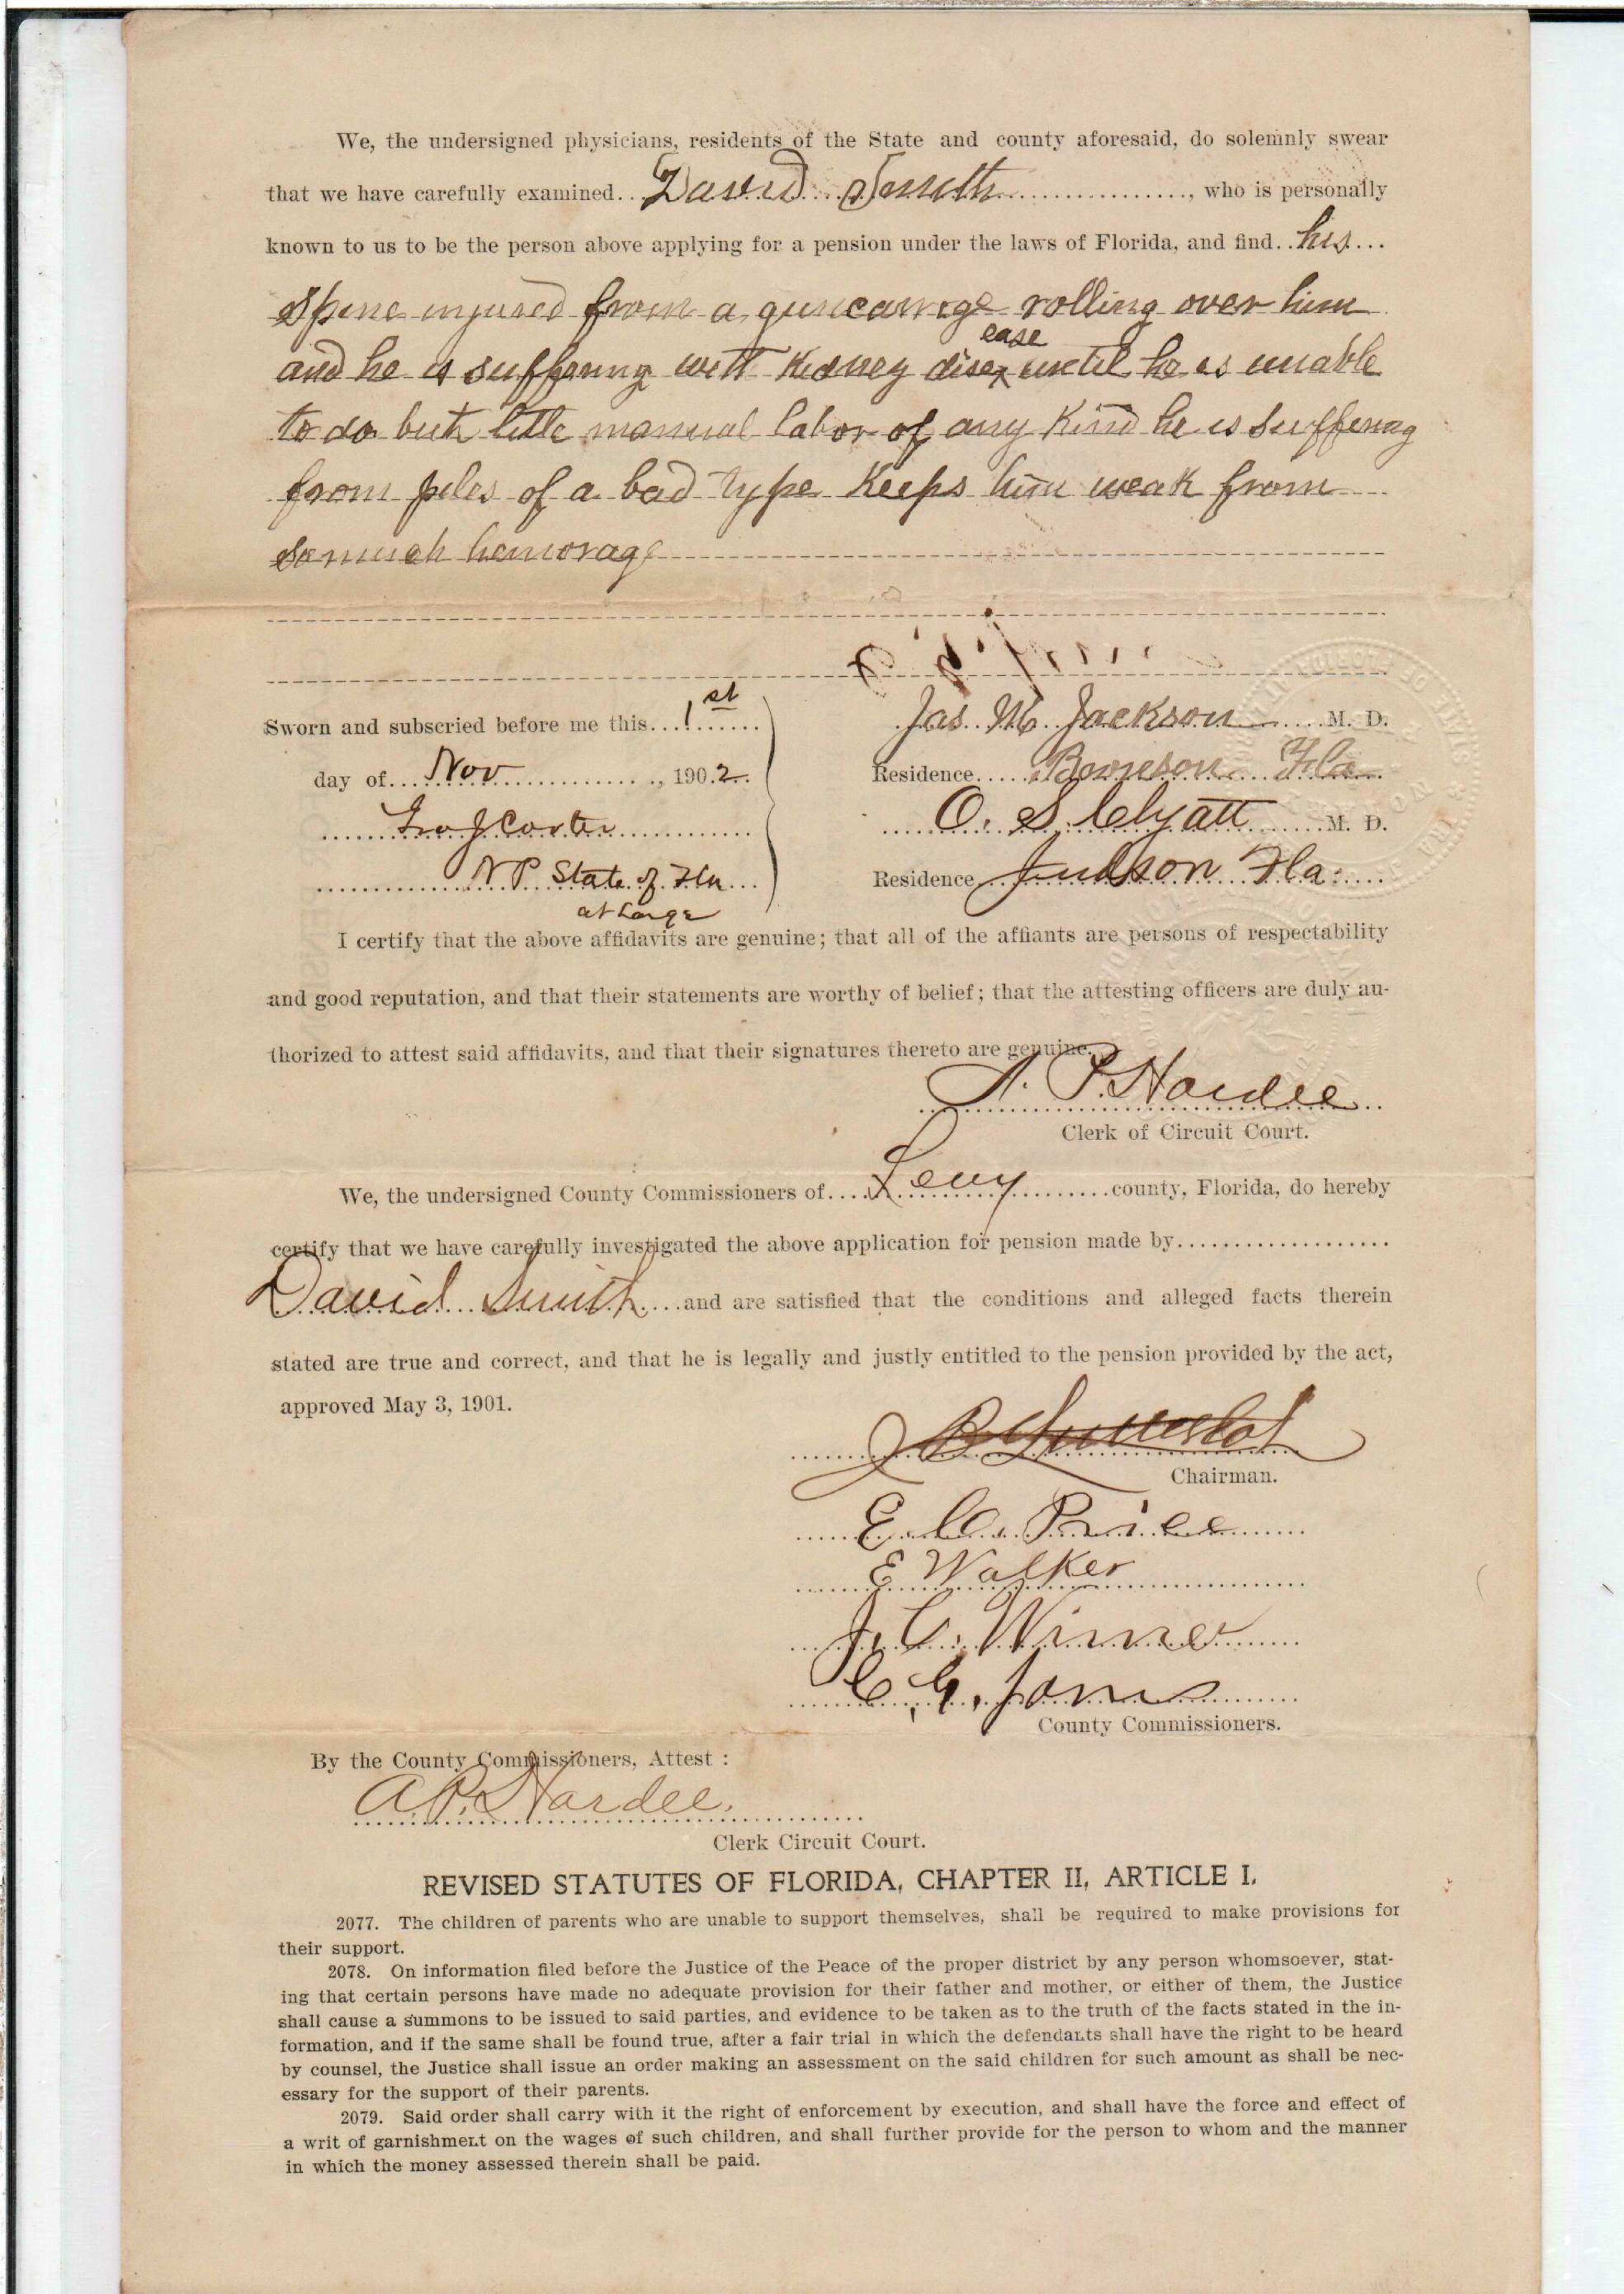 We, the undersigned physicians, residents of the State and county aforesaid, do solemnly swear
that we have carefully examined David Smith, who is personally
known to us to be the person above applying for a pension under the laws of Florida, and find his
Spine injured from a guncarrige rolling over him
ease
and he is suffering with Kidney dise x until he is unable
to do but little manual labor of any Kind he is suffering
from piles of a bad type Keeps him weak from
so much hemorage
Sworn and subscried before me this 1st
Jas. M. Jackson M. D.
day of Nov, 1902
Residence Bronson Fla
Carter
O. S. Clyatt M. D.
N P State of Fla
Residence Judson Fla.
at Large
I certify that the above affidavits are genuine; that all of the affiants are persons of respectability
and good reputation, and that their statements are worthy of belief; that the attesting officers are duly au-
thorized to attest said affidavits, and that their signatures thereto are genuine.
A. P. Hardee
Clerk of Circuit Court.
We, the undersigned County Commissioners of Levy county, Florida, do hereby
certify that we have carefully investigated the above application for pension made by
David Smith and are satisfied that the conditions and alleged facts therein
stated are true and correct, and that he is legally and justly entitled to the pension provided by the act,
approved May 3, 1901.
J B
Chairman.
E. Price
E Walker
J. C.
C. G. Jones
County Commissioners.
By the County Commissioners, Attest :
A. P. Hardee.
Clerk Circuit Court.
REVISED STATUTES OF FLORIDA, CHAPTER II, ARTICLE I.
2077. The children of parents who are unable to support themselves, shall be required to make provisions for
their support.
2078. On information filed before the Justice of the Peace of the proper district by any person whomsoever, stat-
ing that certain persons have made no adequate provision for their father and mother, or either of them, the Justice
shall cause a summons to be issued to said parties, and evidence to be taken as to the truth of the facts stated in the in-
formation, and if the same shall be found true, after a fair trial in which the defendants shall have the right to be heard
by counsel, the Justice shall issue an order making an assessment on the said children for such amount as shall be nec-
essary for the support of their parents.
2079. Said order shall carry with it the right of enforcement by execution, and shall have the force and effect of
a writ of garnishment on the wages of such children, and shall further provide for the person to whom and the manner
in which the money assessed therein shall be paid.